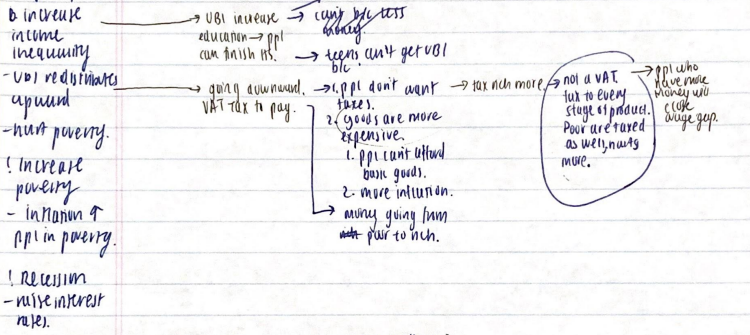 b. increase
income
inequality
- UBI redistributes
upward
- hurt poverty.
! Increase
poverty
- inflation ↑
ppl in poverty.
! Recession
- raise interest
rates.
→ UBI increase
education → ppl
can finish HS.
→ can't b/c less
money.
→ teens can't get UBI
b/c
→ going downward.
VAT tax to pay.
→ 1. ppl don't want
taxes.
2. goods are more
expensive.
1. ppl can't afford
basic goods.
2. more inflation.
→ money going from
poor to rich.
→ tax rich more.
→ not a VAT.
tax to every
stage of product.
Poor are taxed
as well, hurts
more.
→ ppl who
have more
money will
close
wage gap.